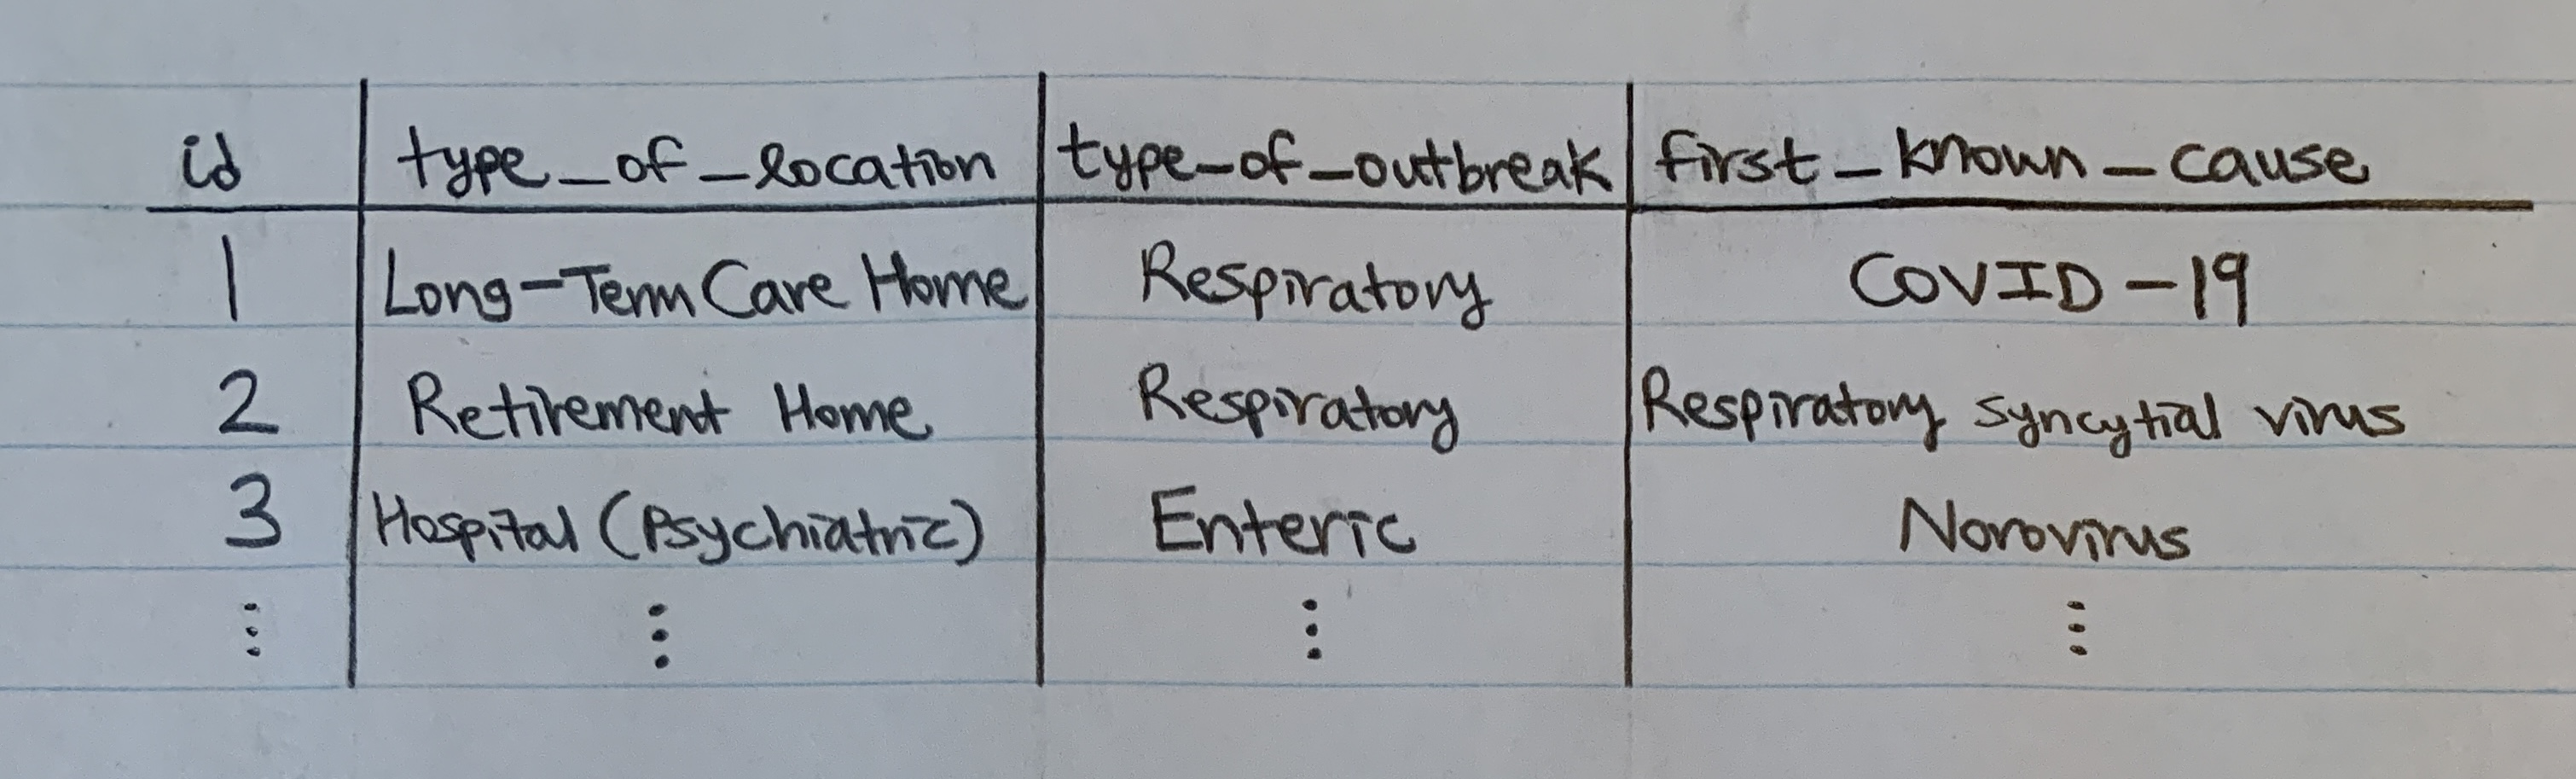 id type_of_location type_of_outbreak first_known_cause
1 Long-Term Care Home Respiratory COVID-19
2 Retirement Home Respiratory Respiratory syncytial virus
3 Hospital (Psychiatric) Enteric Norovirus
⋮ ⋮ ⋮ ⋮